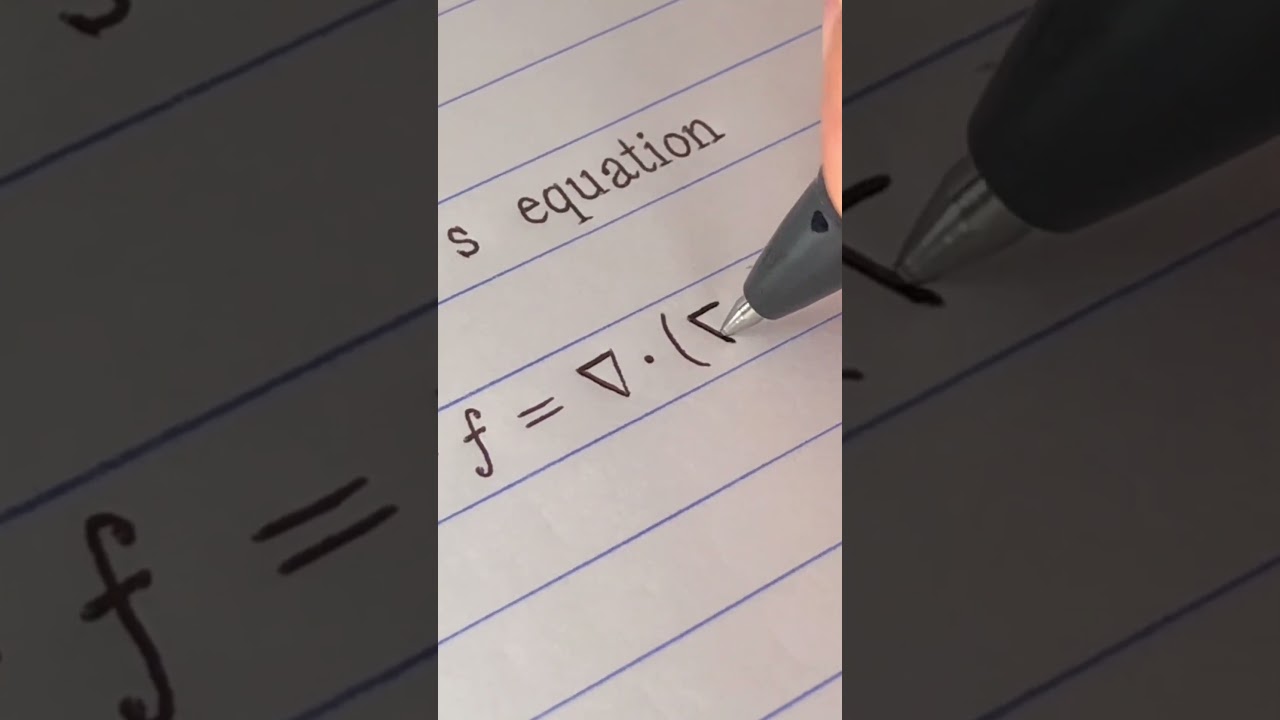 s equation
f = ∇ · (